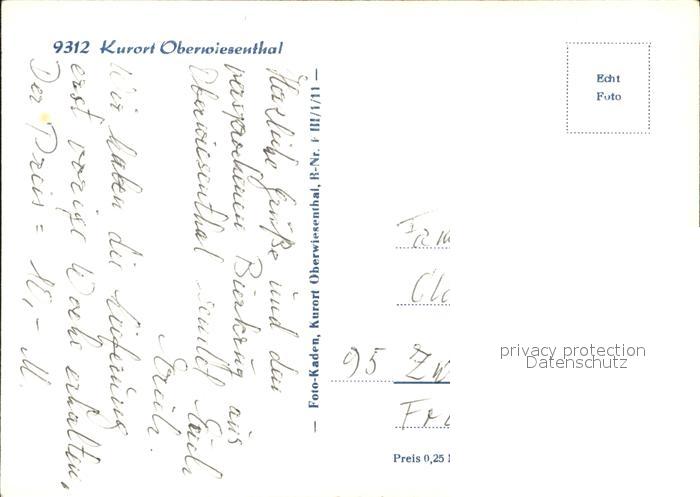 9312 Kurort Oberwiesenthal
Herzliche Grüße und den
versprochenen Bierkrug aus
Oberwiesenthal sendet Euch
Wir haben die Lieferung
erst vorige Woche erhalten,
Der Preis = 18,- M.
— Foto-Kaden, Kurort Oberwiesenthal, R-Nr. F III/1/11 —
Echt
Foto
Fam
95 Zw
Preis 0,25
privacy protection
Datenschutz